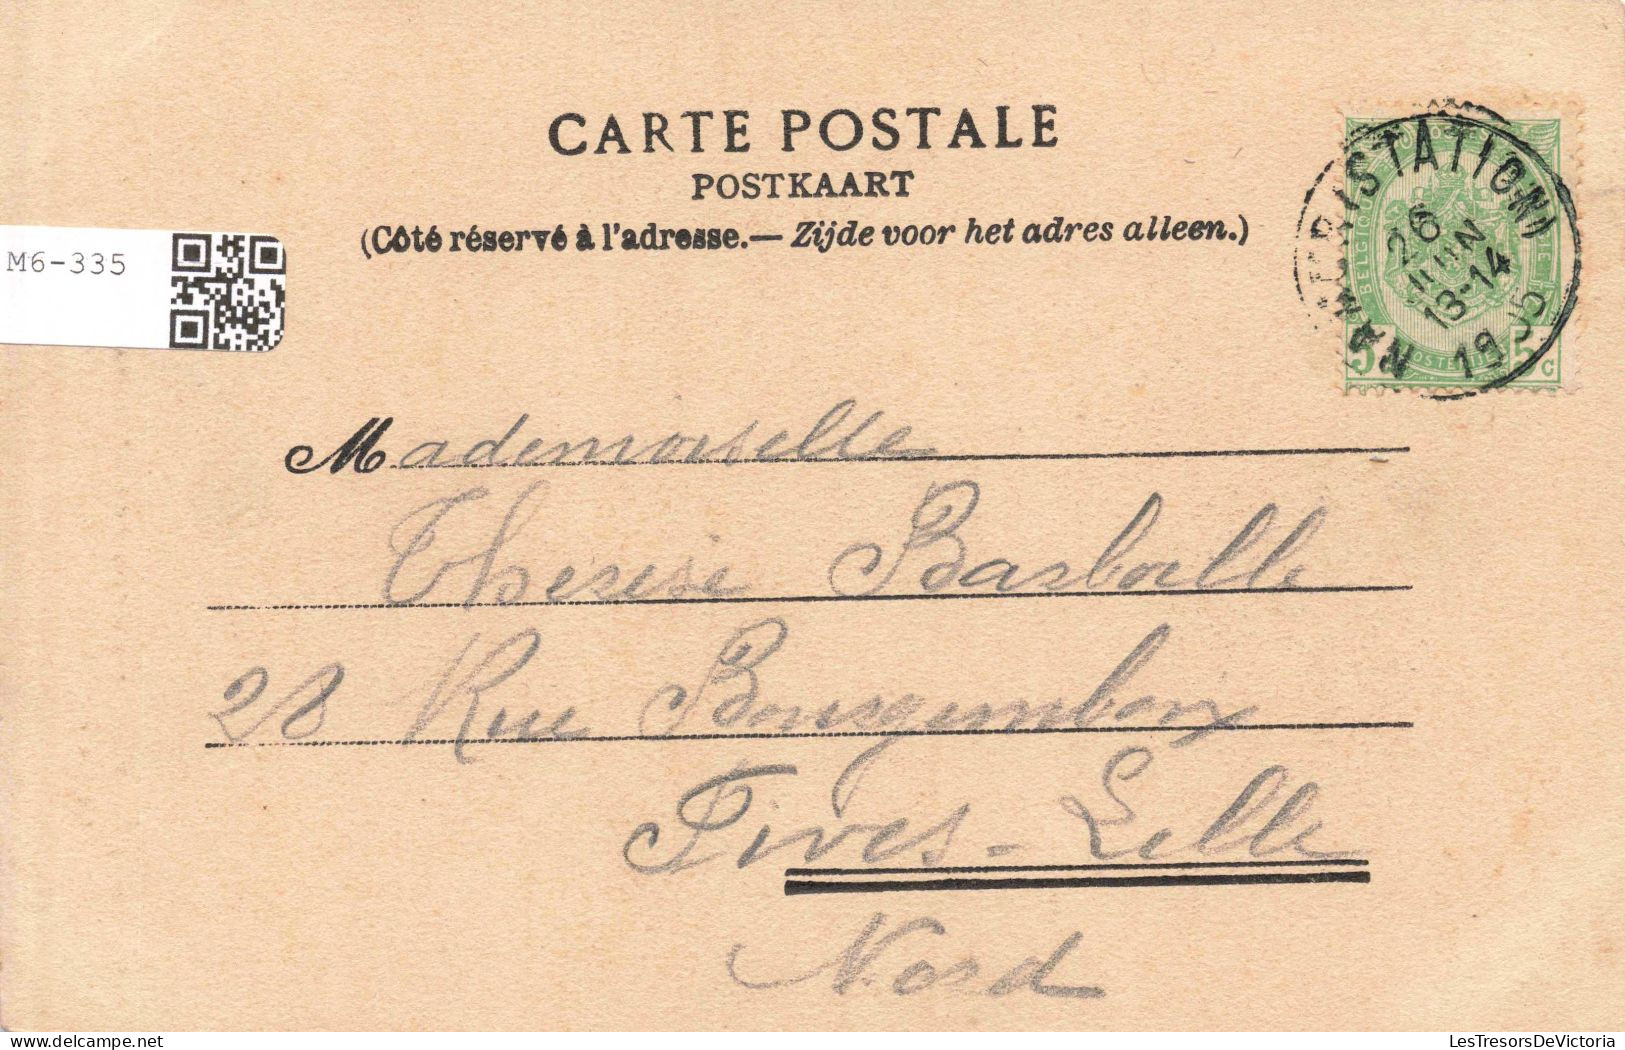 CARTE POSTALE
POSTKAART
(Côté réservé à l'adresse.— Zijde voor het adres alleen.)
M6-335
NAMUR (STATION)
26
JUIN
13-14
1905
BELGIQUE
5c 5c
Mademoiselle
Therèse Barballe
28 Rue
Fives-Lille
Nord
LesTresorsDeVictoria